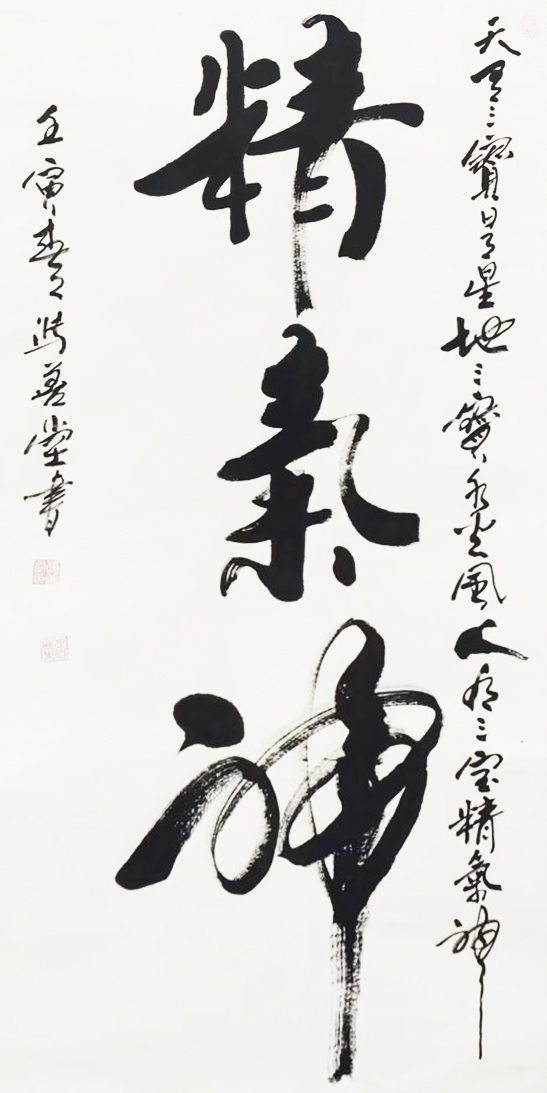 天有三寶日月星地三寶水火風人有三宝精氣神
精氣神
壬寅春善堂書